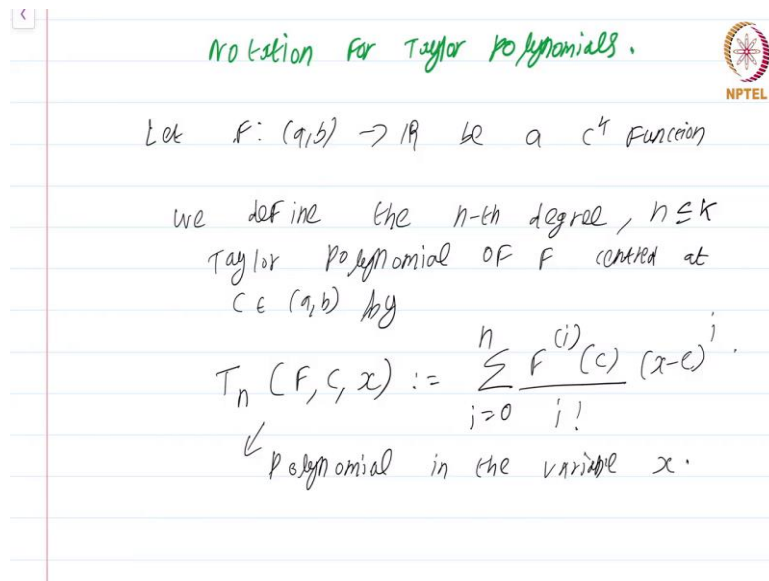 Notation For Taylor Polynomials.
NPTEL
Let F: (a,b) → ℝ be a C^k Function
we define the n-th degree, n ≤ k
Taylor Polynomial OF F centred at
C ∈ (a,b) by
T_n (F, c, x) := \sum_{i=0}^{n} \frac{F^{(i)}(c)}{i!} (x-c)^i .
Polynomial in the variable x.